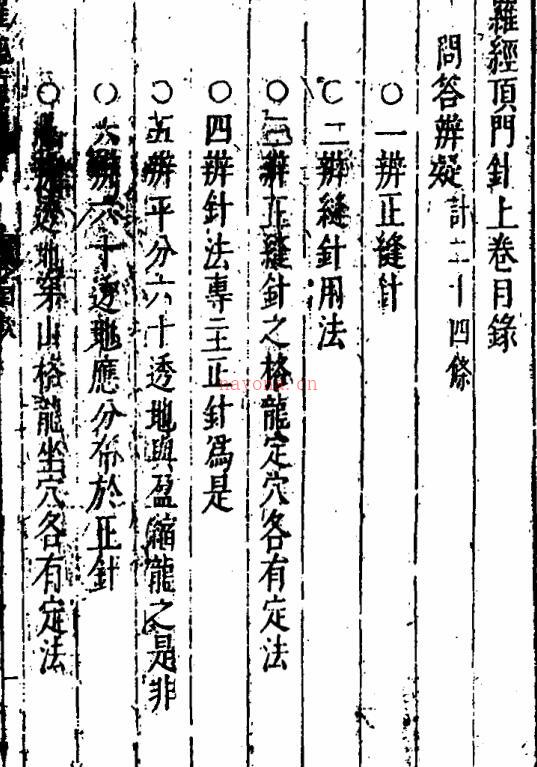 羅經頂門針上卷目錄
問答辨疑 計二十四條
○一辨正縫針
○二辨縫針用法
○三辨正縫針之格龍定穴各有定法
○四辨針法專主正針爲是
○五辨平分六十透地與盈縮龍之是非
○六辨六十透地應分布於正針
○透地渠山格龍坐穴各有定法
nayona.cn